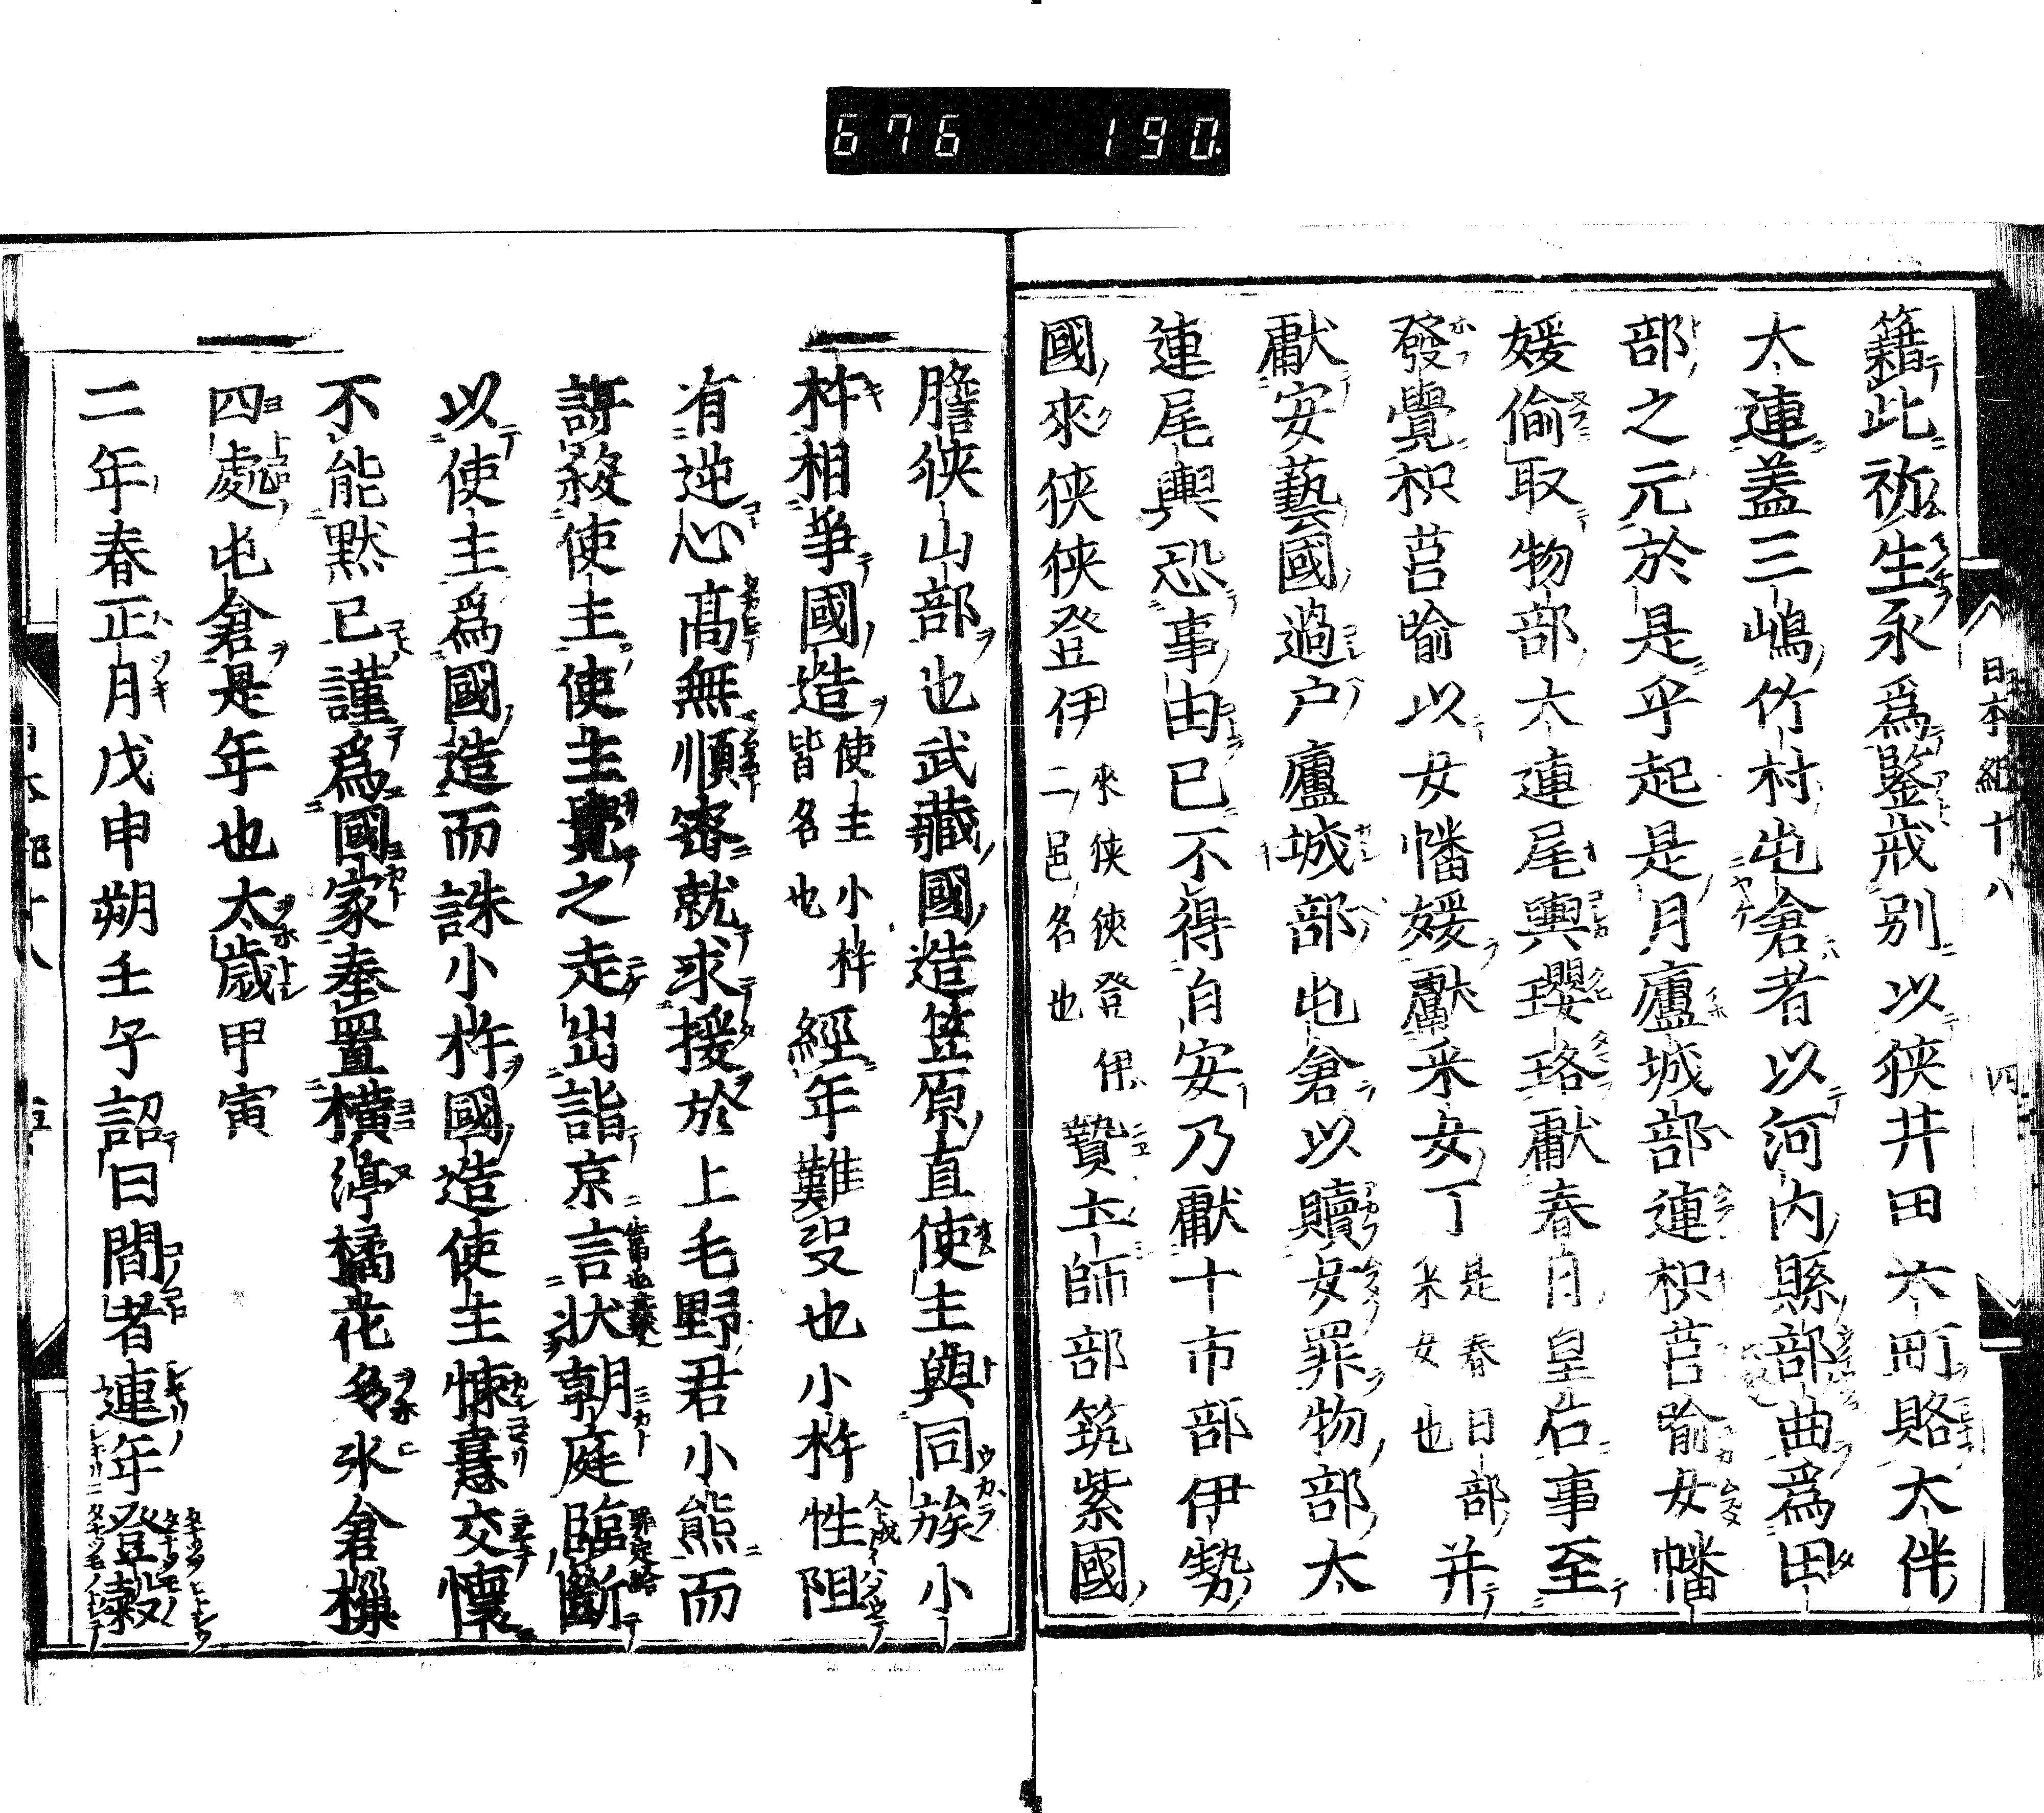 676 190
日本紀十八 四
籍此弥生永爲鑒戒別以狭井田六町賂大伴
大連蓋三嶋竹村屯倉者以河内縣部曲爲田
部之元於是乎起是月廬城部連枳莒喻女幡
媛偷取物部大連尾輿瓔珞獻春日皇后事至
發覺枳莒喻以女幡媛獻采女丁是春日部采女也并
獻安藝國過户廬城部屯倉以贖女罪物部大
連尾輿恐事由已不得自安乃獻十市部伊勢
國來狭狭登伊來狭狭登伊二邑名也贄土師部筑紫國
膽狭山部也武藏國造笠原直使主與同族小
杵相爭國造使主小杵皆名也經年難決也小杵性阻
有逆心髙無順密就求援於上毛野君小熊而
謀殺使主使主覺之走出詣京言状朝庭臨斷
以使主爲國造而誅小杵國造使主悚憙交懷
不能默已謹爲國家奉置横渟橘花多氷倉樔
四處屯倉是年也太歲甲寅
二年春正月戊申朔壬子詔曰間者連年登穀